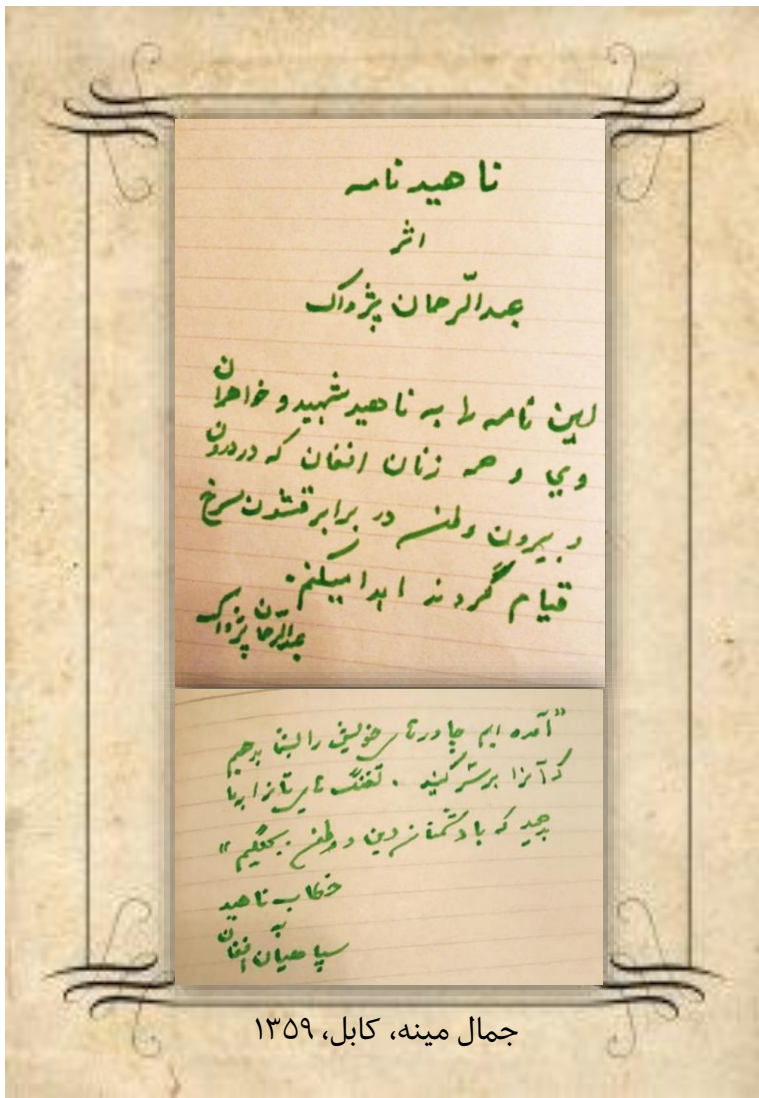 ناهید نامه
اثر
عبدالرّحمان پژواک
این نامه را به ناهید شهید و خواهران
وی و همه زنان افغان که در درون
و بیرون وطن در برابر قشون سرخ
قیام کردند اهدا میکنم.
عبدالرّحمان پژواک
"آمده ایم چادرهای خویش را بشما بدهیم
که آنرا بر سر کنید. تفنگ های تانرا بما
بدهید که با دشمنان دین و وطن بجنگیم"
خطاب ناهید
به
سپاهیان افغان
جمال مینه، کابل، ۱۳۵۹